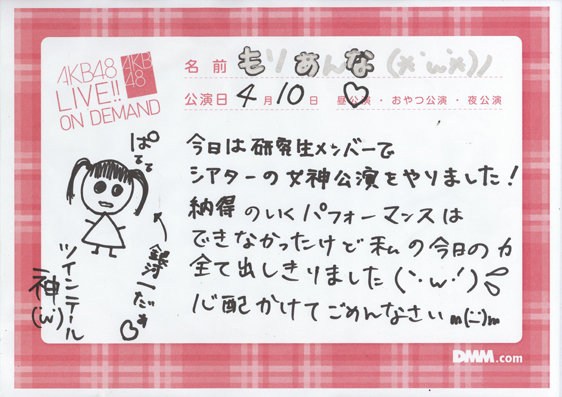 AKB48
LIVE!!
ON DEMAND
AKB
48
名前 もりあんな(*´ω`*)ﾉ
公演日 4月10日 昼公演・おやつ公演・夜公演
今日は研究生メンバーで
シアターの女神公演をやりました!
納得のいくパフォーマンスは
できなかったけど私の今日の力
全て出しきりました(`・ω・´)
心配かけてごめんなさいm(_ _)m
ぱるる
銀河一だぁ
ツインテール
神(´ω`)
DMM.com